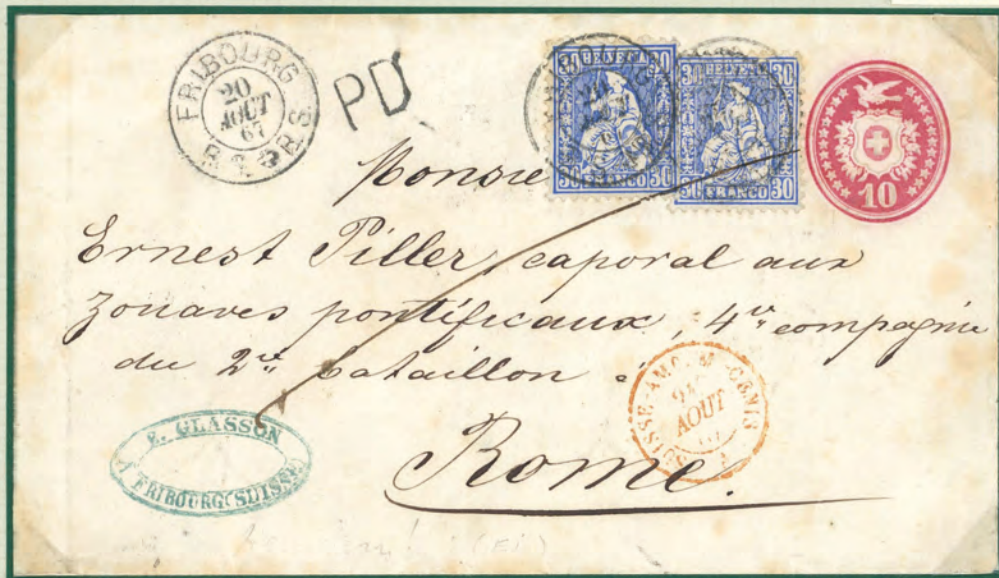 FRIBOURG
20
AOUT
67
PD
30 HELVETIA 30
30 FRANCO 30
30 HELVETIA 30
30 FRANCO 30
10
Monsie
Ernest Piller, caporal aux
zouaves pontificaux, 4e compagnie
du 2e bataillon à
Rome.
SUISSE-AMB. M. CENIS
AOUT
E. GLASSON
À FRIBOURG (SUISSE)